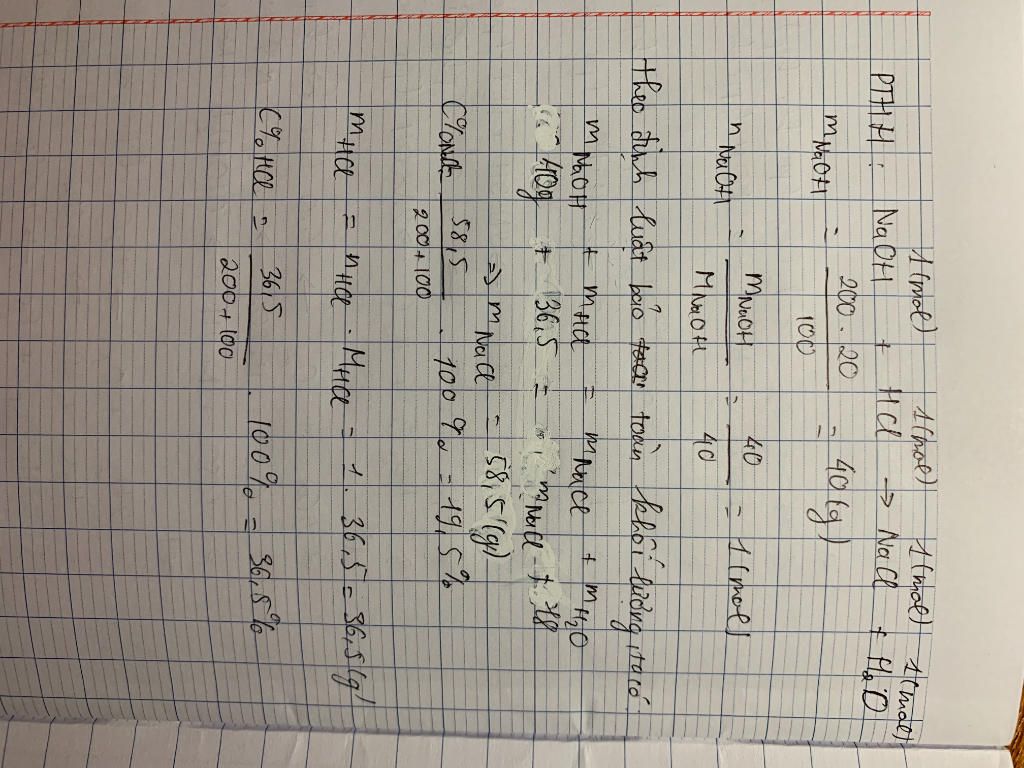 1(mol) 1(mol) 1(mol) 1(mol)
PTHH: NaOH + HCl → NaCl + H₂O
m NaOH = 200 . 20 / 100 = 40(g)
n NaOH = m NaOH / M NaOH = 40 / 40 = 1(mol)
theo định luật bảo toàn khối lượng, ta có
m NaOH + m HCl = m NaCl + m H₂O
40g + 36,5 = m NaCl + 18
⇒ m NaCl = 58,5(g)
C% NaCl 58,5 / 200+100 . 100% = 19,5%
m HCl = n HCl . M HCl = 1. 36,5 = 36,5(g)
C% HCl = 36,5 / 200+100 . 100% = 36,5%